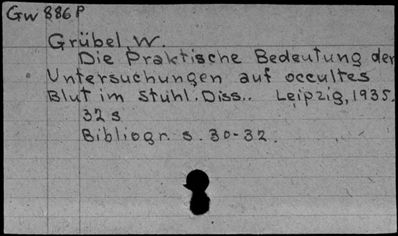 Gw 886 P
Grübel W.
Die Praktische Bedeutung der
Untersuchungen auf occultes
Blut im Stuhl. Diss.. Leipzig, 1935.
32 s
Bibliogr. s. 30-32.